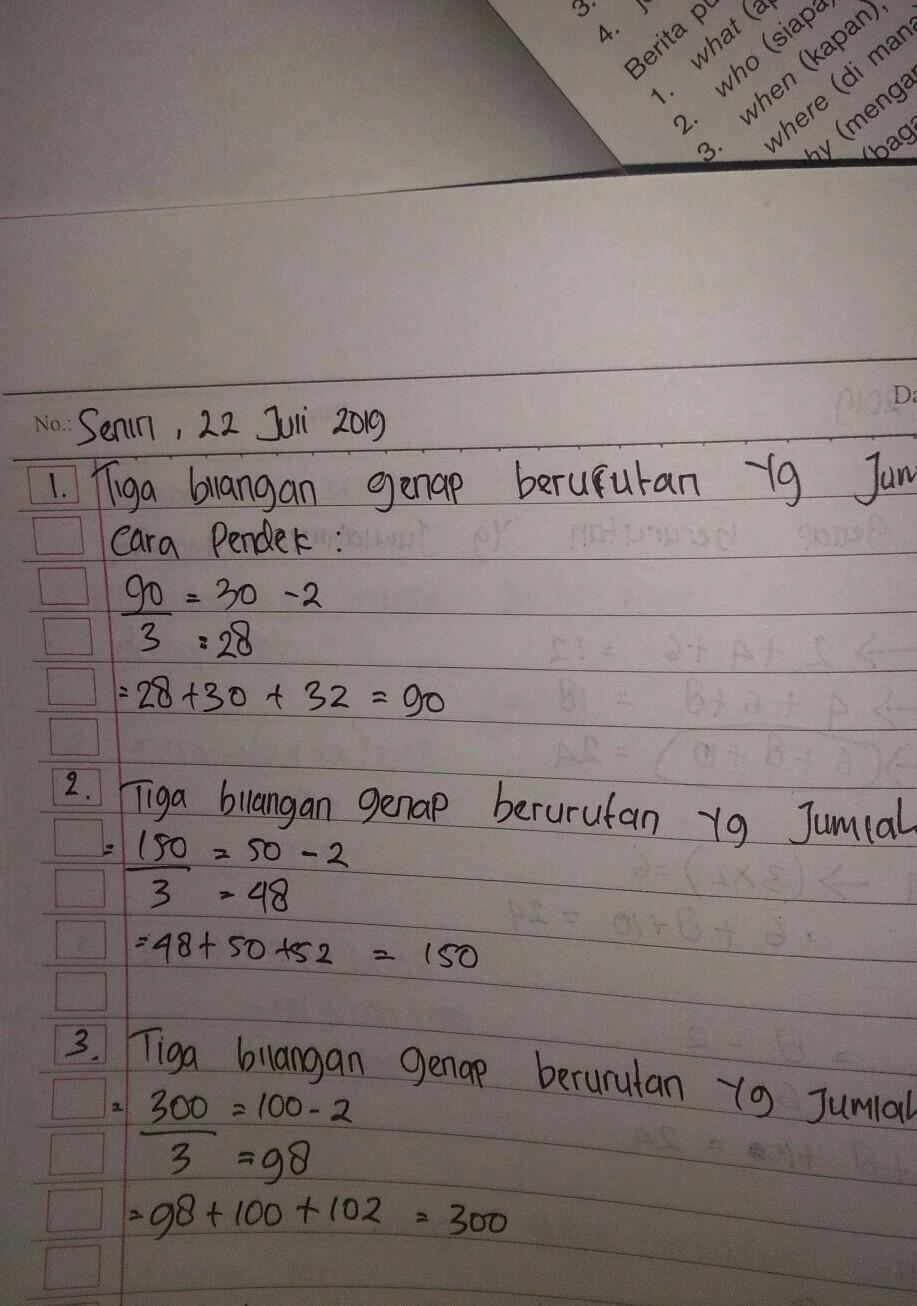 3.
4.
Berita pu
1. what (ap
2. who (siapa)
3. when (kapan),
where (di mana
hy (mengap
(baga
No.: Senin, 22 Juli 2019
Da
1. Tiga bilangan genap berurutan Yg Jum
Cara Pendek :
90 = 30 - 2
3 = 28
= 28 + 30 + 32 = 90
2. Tiga bilangan genap berurutan Yg Jumlah
= 150 = 50 - 2
3 = 48
= 48 + 50 + 52 = 150
3. Tiga bilangan genap berurutan Yg Jumlah
= 300 = 100 - 2
3 = 98
= 98 + 100 + 102 = 300